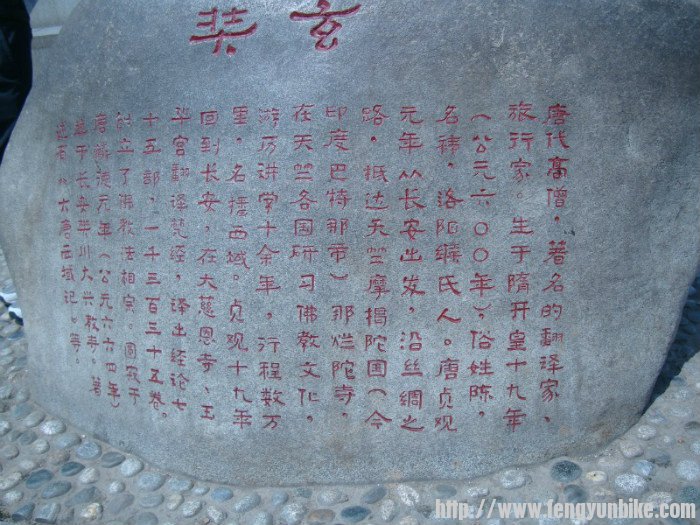 玄奘
唐代高僧，著名的翻译家、
旅行家。生于隋开皇十九年
（公元六〇〇年），俗姓陈，
名祎，洛阳缑氏人。唐贞观
元年从长安出发，沿丝绸之
路，抵达天竺摩揭陀国（今
印度巴特那市）那烂陀寺，
在天竺各国研习佛教文化，
游历讲学十余年，行程数万
里，名播西域。贞观十九年
回到长安，在大慈恩寺、玉
华宫翻译梵经，译出经论七
十五部，一千三百三十五卷。
创立了佛教法相宗。圆寂于
唐麟德元年（公元六六四年）
葬于长安樊川大兴教寺。著
述有《大唐西域记》等。
http://www.fengyunbike.com